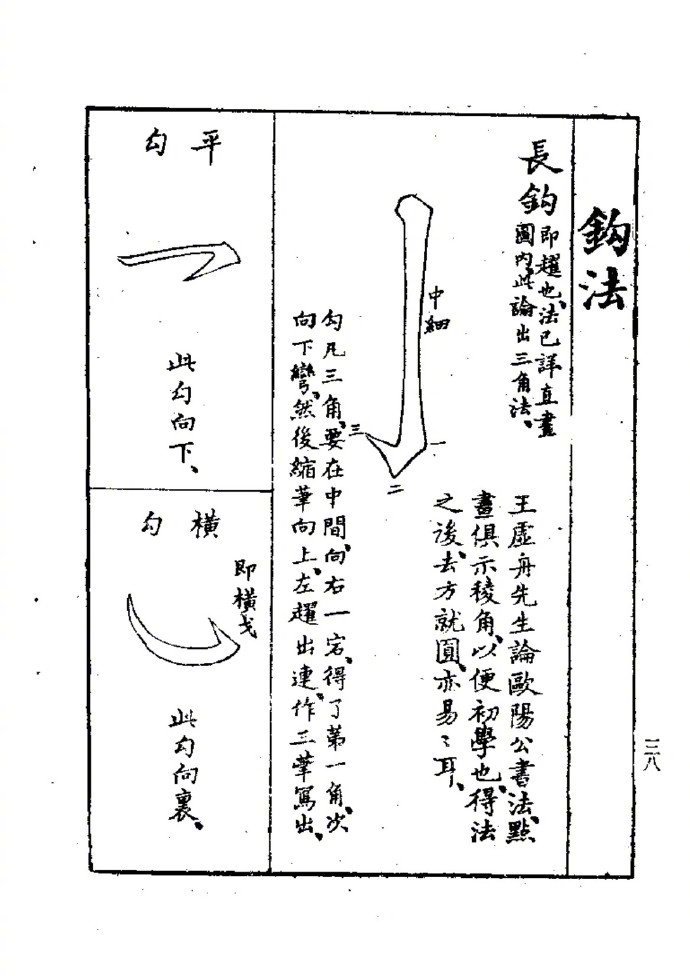 鈎法
長鈎
即趯也、法已詳直畫
圖内、此論出三角法、
中細
一
二
三
王虛舟先生論歐陽公書法、點
畫俱示稜角、以便初學也、得法
之後、去方就圓、亦易〻耳、
勾凡三角、要在中間、向右一宕、得了第一角、次
向下彎、然後縮筆向上、左趯出連、作三筆寫出、
平勾
此勾向下、
橫勾
即橫戈
此勾向裏、
三八